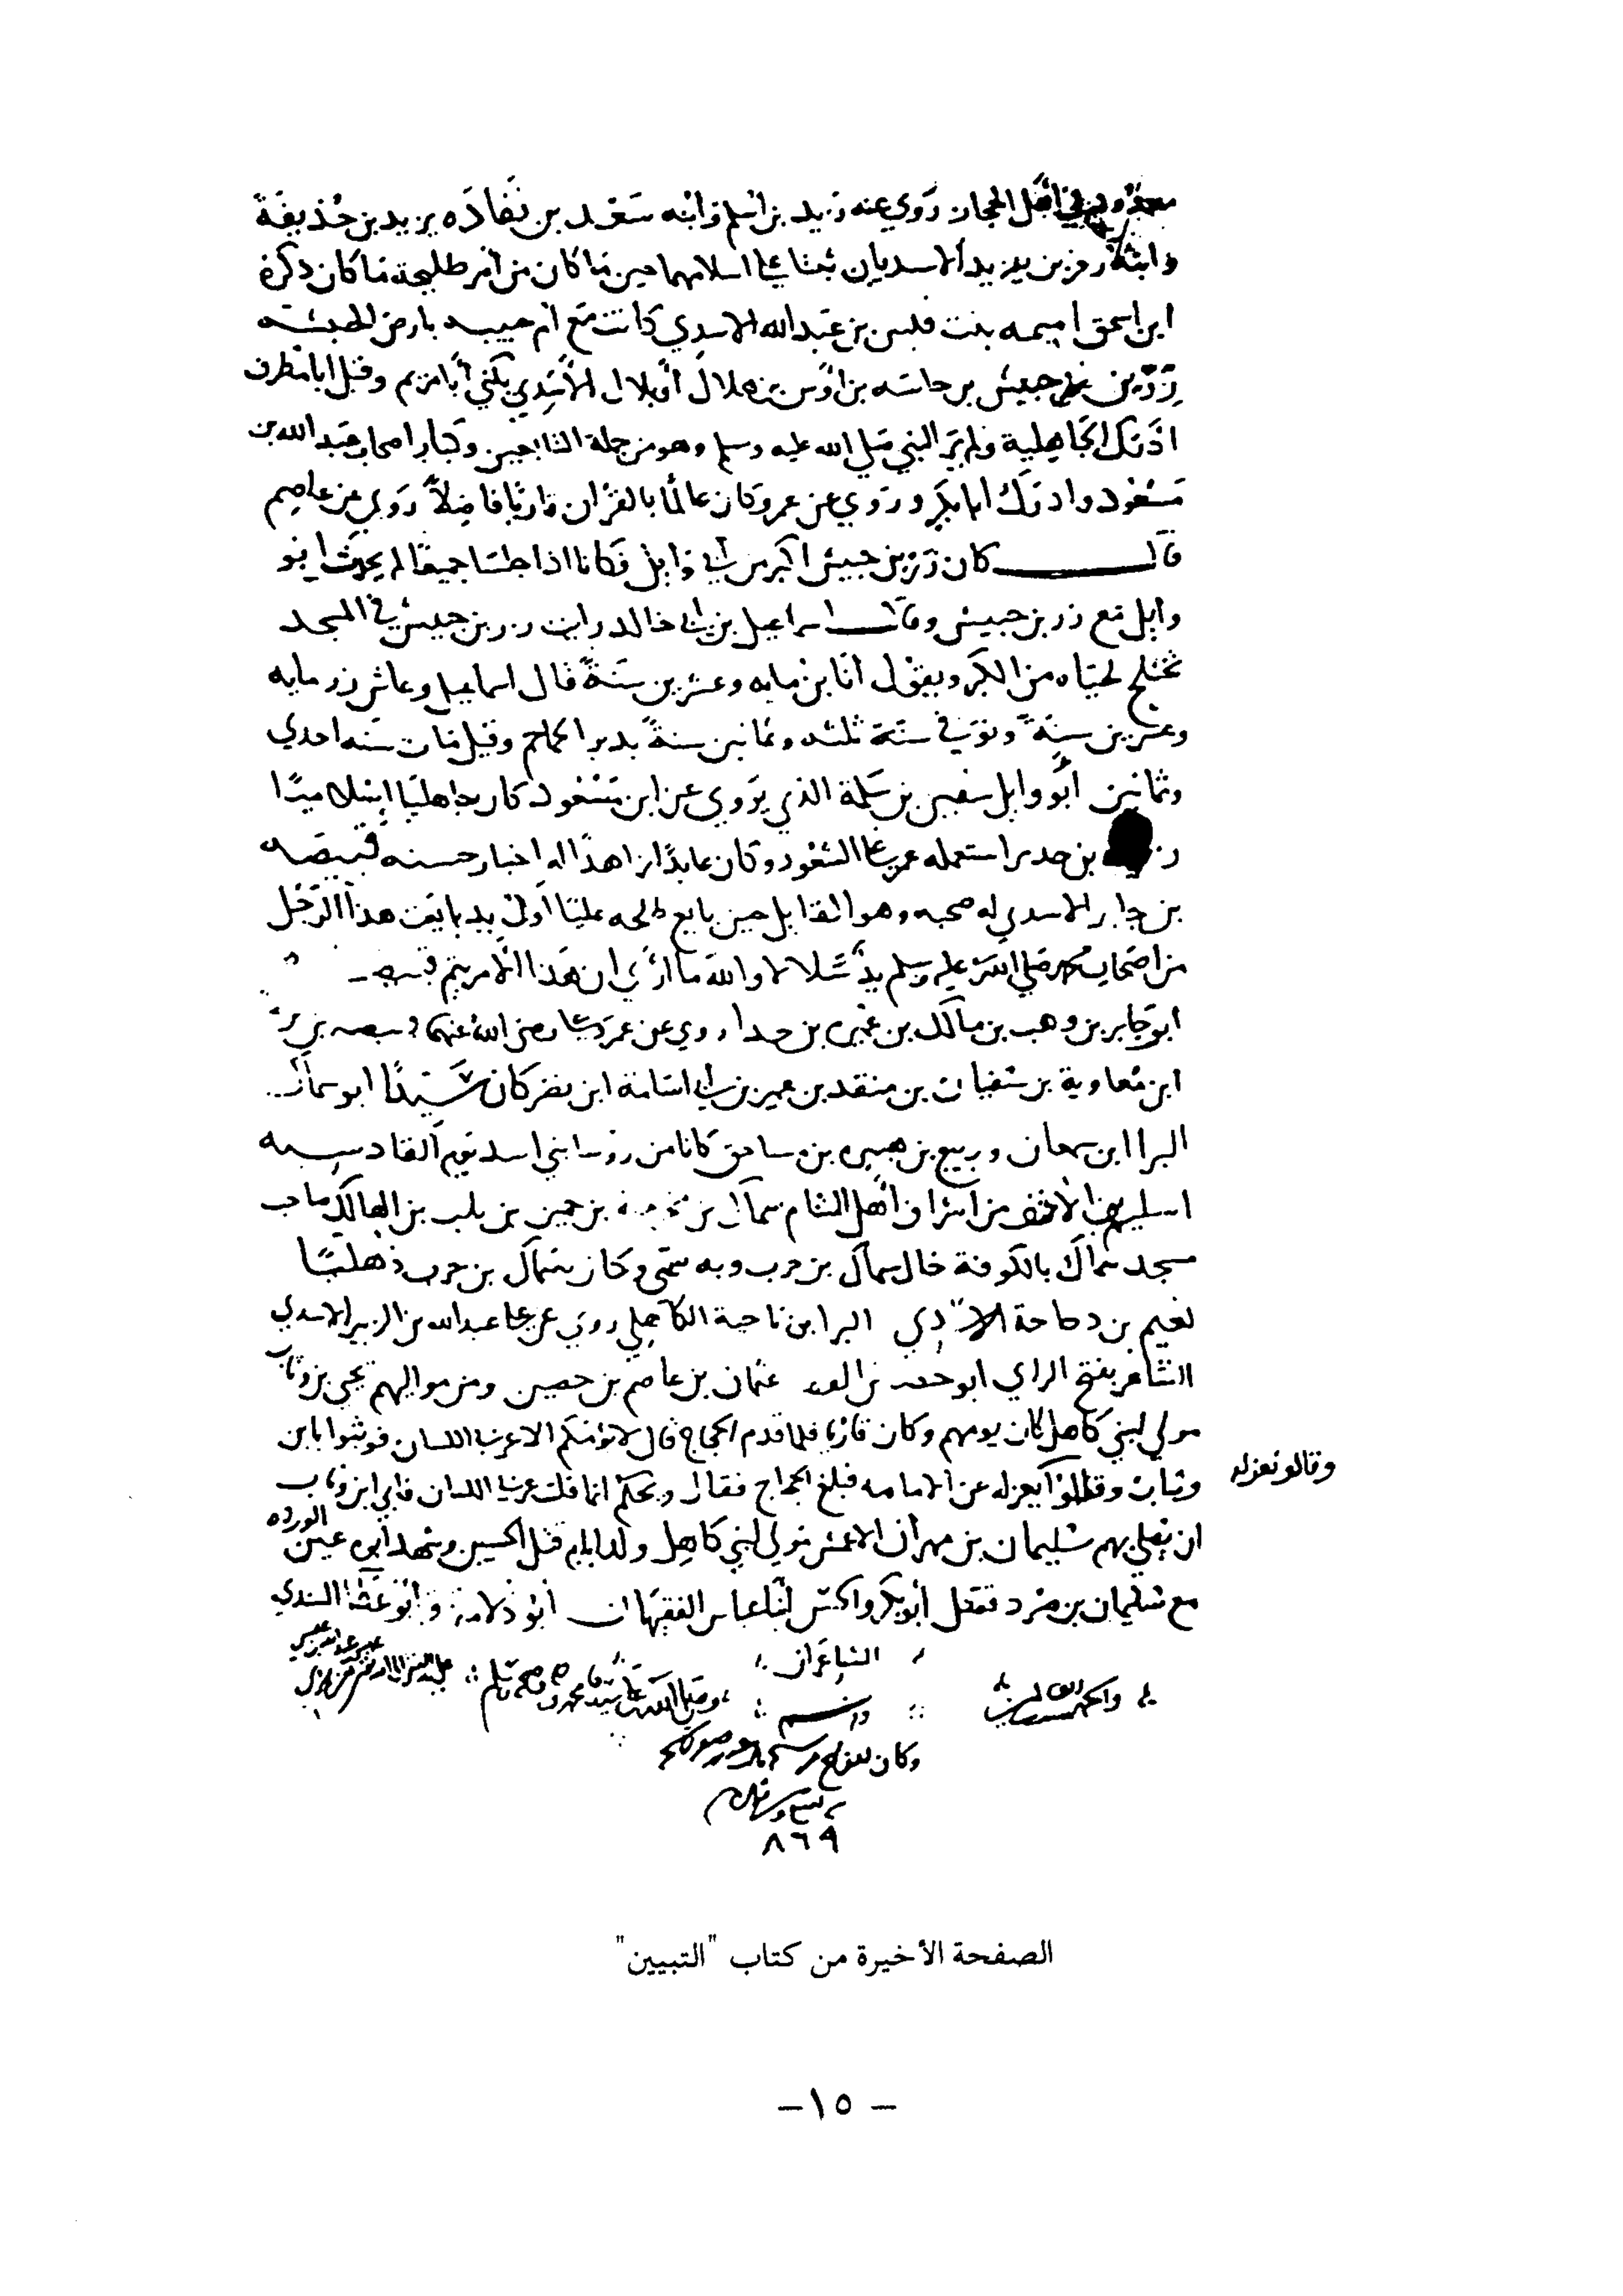 معدود في أهل الحجاز روي عنه زيد بن اسلم وابنه سَعْد بن نُقَادَه يزيد بن حُذيفَة
وابنه زفر بن يزيد الاسديان ثبتا علي اسلامهما حين ما كان من أمر طليحة ما كان ذكره
ابن اسحق اميمه بنت قيس بن عَبد الله الاسدي كانت مَع ام حبيبه بارض الحبشه
زِرّ بن حبيش بن حباشه بن اوْس بن هلال أو بلال الأسَدي يكني أبا مريم وقيل ابا مطرف
ادْرَك الجاهِلية ولم يَر النبي صَلي الله عليه وسلم وهو من جلة التابعين وكبار اصحاب عَبد الله بن
مَسْعُود وادرَك ابا بَكر وروَي عن عمر وكان عَالمًا بالقرْان قارئا فاضِلاً رَوي عن عاصِم
قال كان زرّ بن حبيش اكبر من أبي وَايل فكانا اذا جلسَا جميعًا لم يحدث ابو
وايل مَع زر بن حبيش وقال اسماعيل بن ابي خالد رايت زر بن حبيش في المسجد
تختلج لحيَاه من الكبر ويقوْل أنَا ابن مايه وعشرين سَنةً قال اسماعيل وعاش زر مايه
وعشرين سنةً وتوفي في سَنة ثلثه وثمانين سنةً بدير الجماجم وقيل مَات سَنه احدي
وثمانين أبو وايل سفين بن سَلمة الذي يَروي عن ابن مَسْعُود كان جاهليًا
بن حدير استعمله عمر علي السُعود وكان عابدًا زاهدًا له اخبار حسنه قبيصَه
بن جابر الاسدي له صحبه وهو القايل حين بايع طلحه عليًا اول يد بايَعت هذا الرّجل
من اصحاب محمد صَلي الله عليه وسلم يد شَلا لا والله ما أري ان هَذا الأمر يتم
ابو جَابر بن وهب بن مالك بن عميره بن حدار روي عن عمَر وعلي رضي الله عنهما
ابن مُعاوية بن سُفيان بن منقد بن عمير بن ابي اسَامة ابن نصر كان سَيدًا ابو سمال
البرا ابن سمعان وربيع بن هبيره بن ساحق كانا من روسا بني اسد يَوم القادسيه
اسليم بن الاحنف من اشراف أهل الشام سمال بن مخرمه بن حمين بن بلب بن الهالك صاحب
مسجد سماك بالكوفة خال سماك بن حرب وبه سمّي وكان سماك بن حرب ذهليًا
نعيم بن دجاجة الاسدي البرا بن ناجية الكاهِلي روي عن علي عبد الله بن الزبير الاسدي
الشاعر بفتح الزاي ابو حصين عثمان بن عاصم بن حصين ومن مواليهم يحيي بن وثاب
مولي لبني كاهل كان يومهم وكان قارئا فلما قدم الحجاج قال لا يؤمنكم الا عربي اللسان فوثبوا بابن
وثاب وقالوا يعزله عن الامامه فبلغ الحجاج فقال ويحكم انما قلت عربي اللسان فابي ابن وثاب
وقالو نعزله
ان يصلي بهم سُليمان بن مهران الاعمش مولي لبني كاهِل ولد ايام قتل الحسين وشهد أبي عين الورده
مع سُليمان بن صُرد فقتل أبو بكر والحسَن ابنا عياش الفقيهان أبو دلامة وأبو عَطا السندي
الشاعَران
والحمد لله رب العالمين
وصلي الله علي سيدنا محمد وآله وصحبه وسلم
وكان الفراغ
٨٦٩
الصفحة الأخيرة من كتاب "التبيين"
- ١٥ -